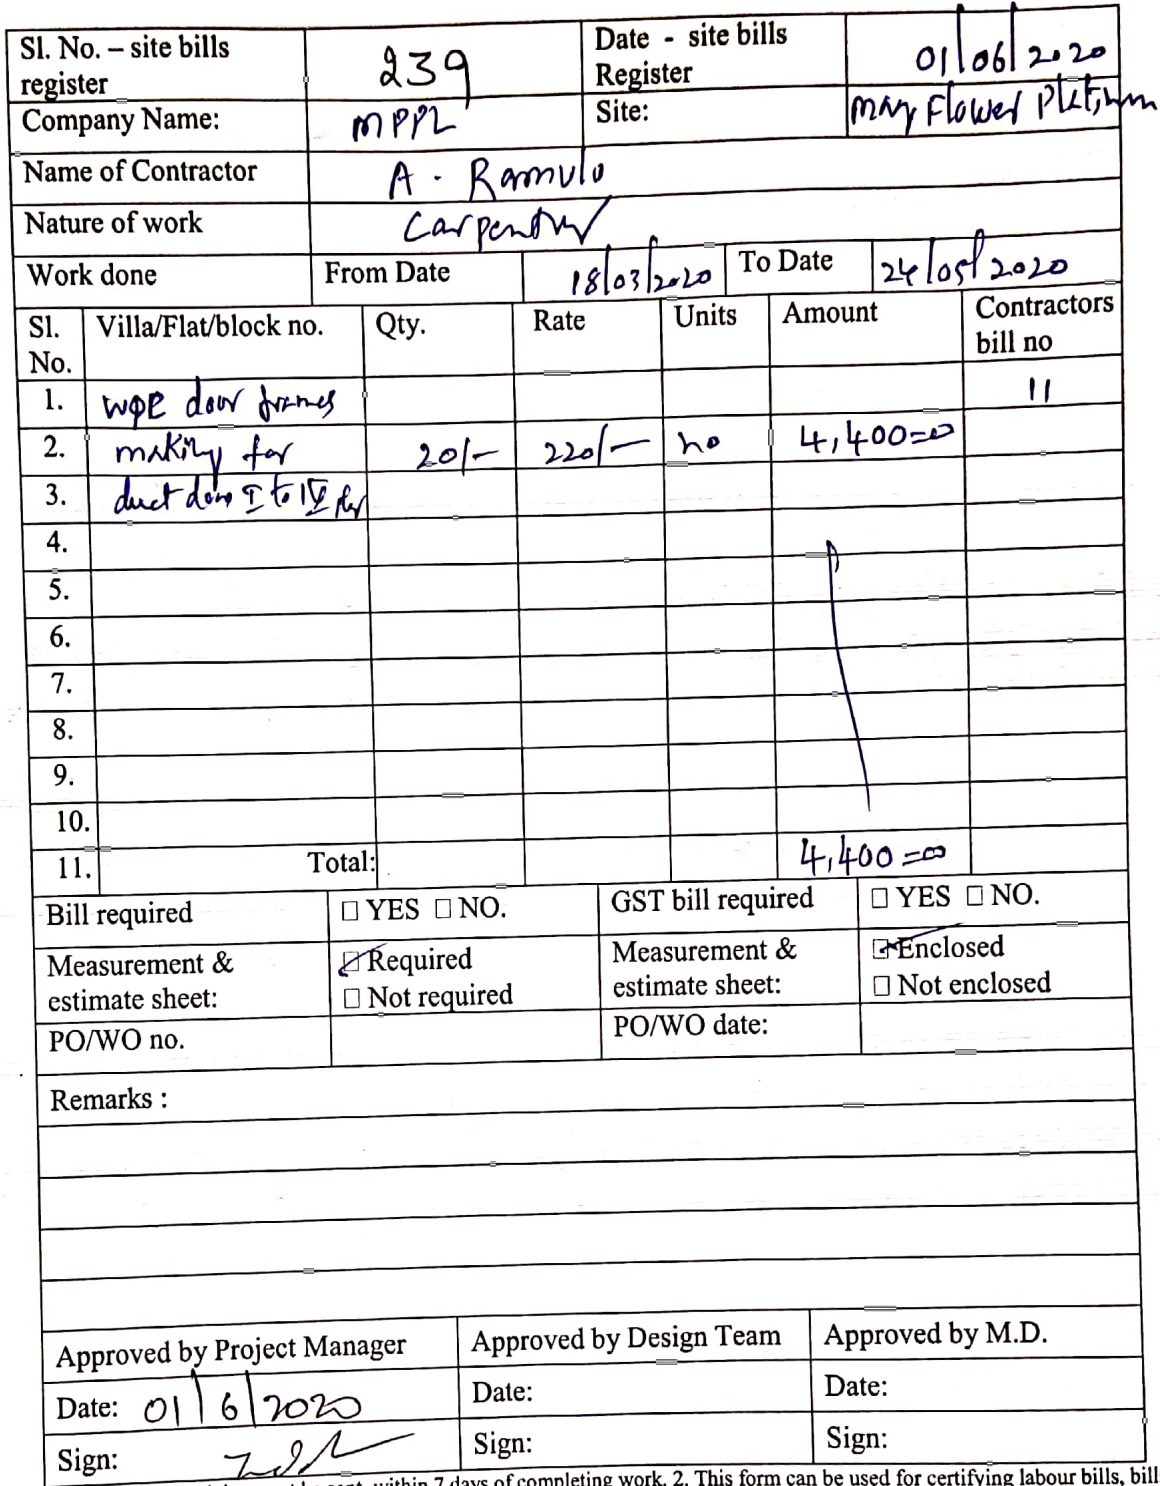 Sl. No. – site bills register 239 Date - site bills Register 01/06/2020
Company Name: MPPL Site: May Flower Platinum
Name of Contractor A. Ramulo
Nature of work Carpentry
Work done From Date 18/03/2020 To Date 24/05/2020
Sl. No. Villa/Flat/block no. Qty. Rate Units Amount Contractors bill no
1. door frames 11
2. making for 20/- 220/- no 4,400=00
3. duct door I to IV
4.
5.
6.
7.
8.
9.
10.
11. Total: 4,400=00
Bill required ☐ YES ☐ NO. GST bill required ☐ YES ☐ NO.
Measurement & estimate sheet: ☑ Required Measurement & estimate sheet: ☑ Enclosed
☐ Not required ☐ Not enclosed
PO/WO no. PO/WO date:
Remarks :
Approved by Project Manager Approved by Design Team Approved by M.D.
Date: 01/6/2020 Date: Date:
Sign: Sign: Sign:
within 7 days of completing work. 2. This form can be used for certifying labour bills, bill